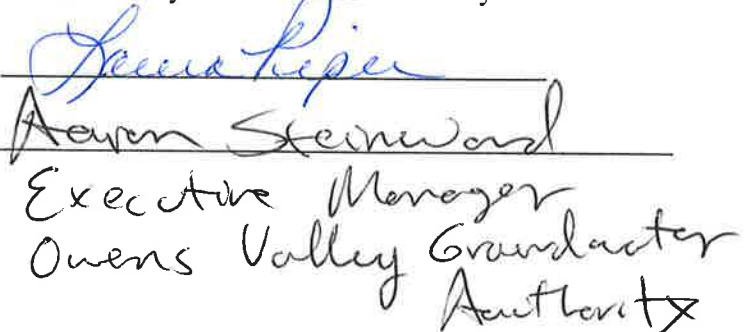 Laura Piper
Aaron Steinwand
Executive Manager
Owens Valley Groundwater
Authority